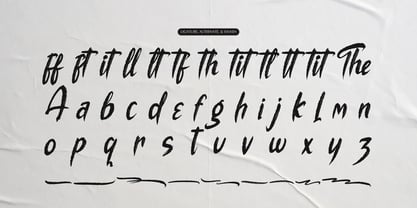 LIGATURE, ALTERNATE, & SWASH
ff ft it ll tt tf th tit tl tt tit The
A a b c d ε f g h i j k L m n
o p q r s t u v w x y z